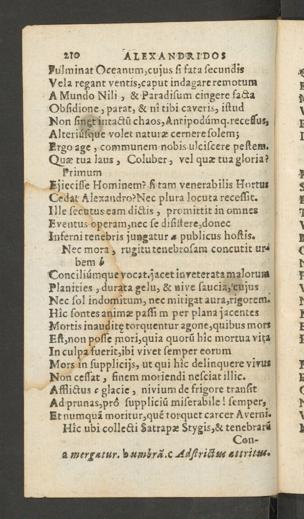 210 ALEXANDRIDOS
Fulminat Oceanum, cujus si fata secundis
Vela regant ventis, caput indagare remotum
A Mundo Nili, & Paradisum cingere facta
Obsidione, parat, & ni tibi caveris, istud
Non sinet intactũ chaos, Antipodúmq. recessus,
Alteriúsque volet naturæ cernere solem;
Ergo age, communem nobis ulciscere pestem.
Quæ tua laus, Coluber, vel quæ tua gloria?
Primum
Ejecisse Hominem? si tam venerabilis Hortus
Cedat Alexandro? Nec plura locuta recessit.
Ille secutus eam dictis, promittit in omnes
Eventus operam, nec se desistere, donec
Inferni tenebris jungatur a publicus hostis.
Nec mora, rugitu tenebrosam concutit ur-
bem b
Conciliúmque vocat. jacet inveterata malorum
Planities, durata gelu, & nive saucia, cujus
Nec sol indomitum, nec mitigat aura, rigorem.
Hic sontes animæ passim per plana jacentes
Mortis inauditę torquentur agone, quibus mors
Est, non posse mori, quia quorũ hic mortua vita
In culpa fuerit, ibi vivet semper eorum
Mors in supplicijs, ut qui hic delinquere vivus
Non cessat, finem moriendi nesciat illic.
Afflictus c glacie, nivium de frigore transit
Ad prunas, prô suppliciũ miserabile! semper,
Et numquã moritur, quẽ torquet carcer Averni.
Hic ubi collecti Satrapæ Stygis, & tenebrarũ
Con-
a mergatur. b umbrâ. c Adstrictus attritus.